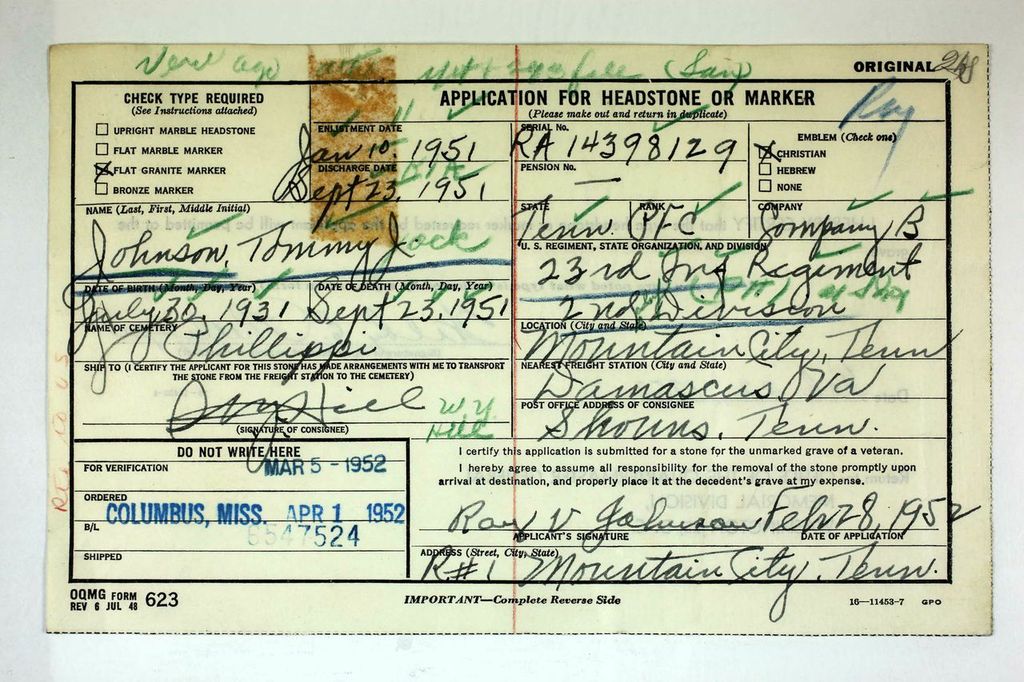 ORIGINAL
CHECK TYPE REQUIRED
(See Instructions attached)
UPRIGHT MARBLE HEADSTONE
FLAT MARBLE MARKER
FLAT GRANITE MARKER
BRONZE MARKER
APPLICATION FOR HEADSTONE OR MARKER
(Please make out and return in duplicate)
ENLISTMENT DATE
Jan 10. 1951
DISCHARGE DATE
Sept 23, 1951
SERIAL No.
RA 14398129
PENSION No.
—
EMBLEM (Check one)
CHRISTIAN
HEBREW
NONE
NAME (Last, First, Middle Initial)
Johnson, Tommy Jack
STATE
Tenn.
RANK
PFC
COMPANY
Company B
U. S. REGIMENT, STATE ORGANIZATION, AND DIVISION
23rd Inf Regiment
2nd Division
DATE OF BIRTH (Month, Day, Year)
July 30, 1931
DATE OF DEATH (Month, Day, Year)
Sept 23, 1951
NAME OF CEMETERY
Phillippi
LOCATION (City and State)
Mountain City, Tenn
SHIP TO (I CERTIFY THE APPLICANT FOR THIS STONE HAS MADE ARRANGEMENTS WITH ME TO TRANSPORT
THE STONE FROM THE FREIGHT STATION TO THE CEMETERY)
W. Y.
Hill
(SIGNATURE OF CONSIGNEE)
NEAREST FREIGHT STATION (City and State)
Damascus, Va
POST OFFICE ADDRESS OF CONSIGNEE
Shouns, Tenn.
DO NOT WRITE HERE
FOR VERIFICATION
MAR 5 - 1952
ORDERED
COLUMBUS, MISS. APR 1 1952
B/L
6547524
SHIPPED
I certify this application is submitted for a stone for the unmarked grave of a veteran.
I hereby agree to assume all responsibility for the removal of the stone promptly upon
arrival at destination, and properly place it at the decedent's grave at my expense.
Roy V Johnson Feb 28, 1952
APPLICANT'S SIGNATURE DATE OF APPLICATION
ADDRESS (Street, City, State)
R.#1 Mountain City, Tenn.
OQMG FORM
REV 6 JUL 48 623
IMPORTANT—Complete Reverse Side
16—11453-7 GPO